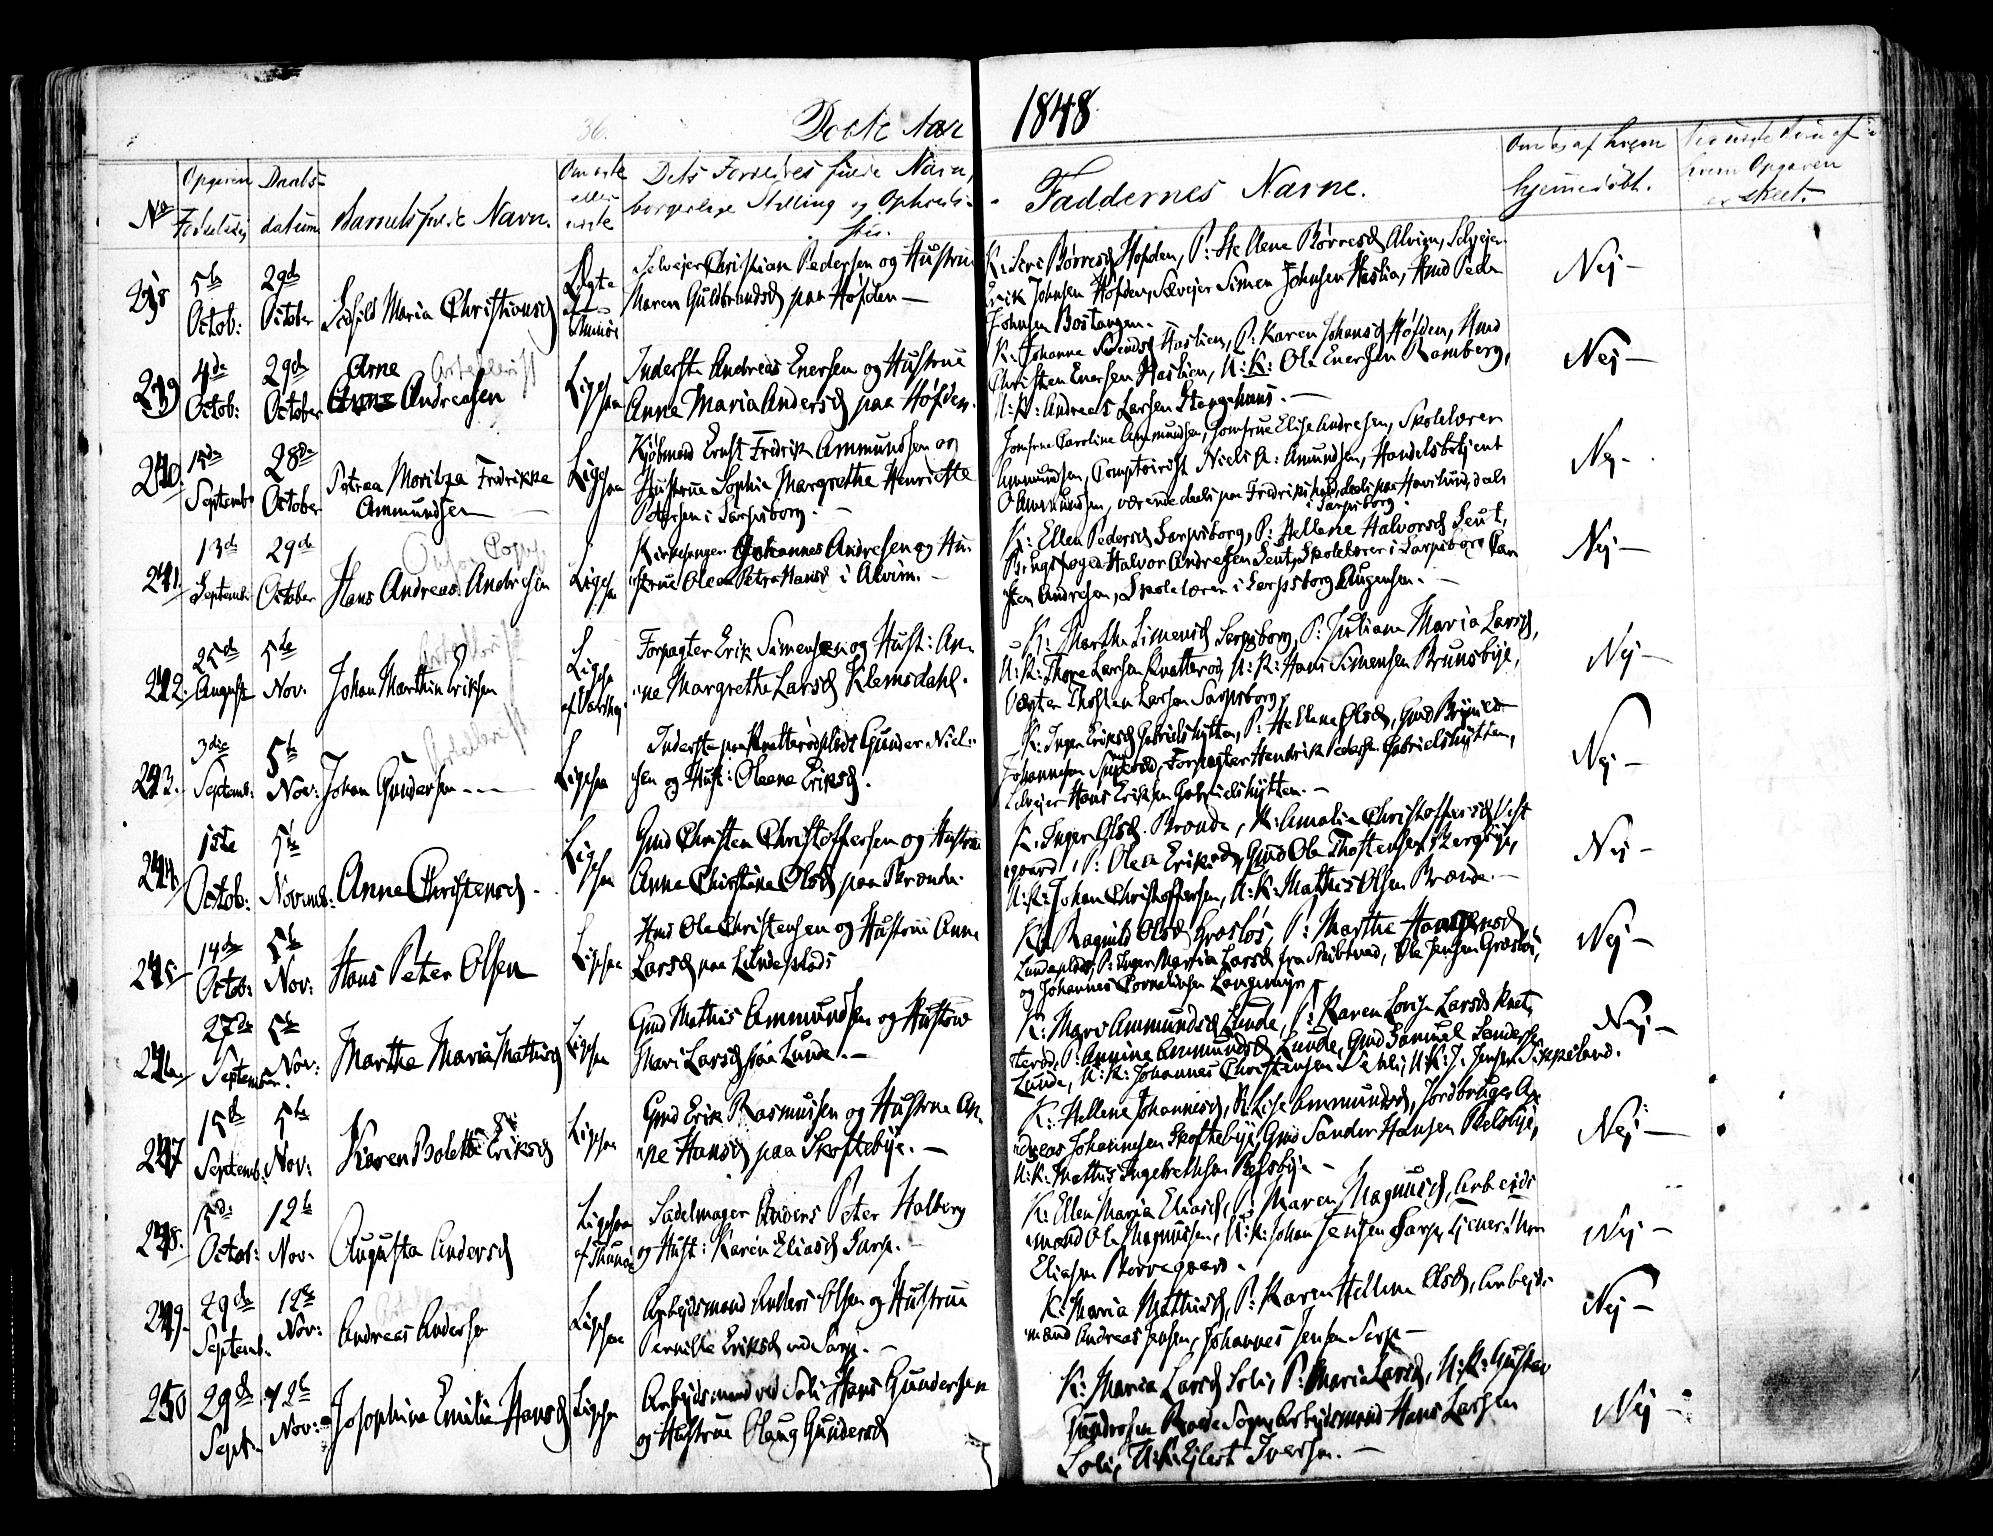 36.
Døbte Aar 1848
No
Opgiven Fødselsdag
Daabs-datum
Barnets fulde Navn.
Om ægte eller uægte
Dets Forældres fulde Navn,
borgerlige Stilling og Opholds-
sted.
Faddernes Navne.
Om og af hvem
hjemmedøbt.
hvem Opgaven
er skeet.
238
5te Octob:
29de October
Maria Christiansd
Ægte
Selvejer Christian Pedersen og Hustrue
Maren Guldbrandsd paa Hofden —
K: Siri Børresd Hofden, P: Hellene Børresd Alvim, Selvejer
Erik Johnsen Hofden, Selvejer Simen Johnsen Haslien, Hmd Peder
Johnsen Bostangen. —
Nej —
239
4de Octob:
29de October
Arne
Andreasen
Ligesaa
Inderste Andreas Enersen og Hustrue
Anne Maria Andersd paa Hofden.
K: Johanne Svendsd Haslien, P: Karen Johansd Hofden, Hmd
Christen Enersen Haslien, U: K: Ole Enersen Ramberg,
U: K: Andreas Larsen Stangehuus. —
Nej —
240.
15de Septemb
28de October
Petraa Moritza Fredrikke
Ammundsen —
Ligesaa
Kjøbmand Ernst Fredrik Ammundsen og
Hustrue Sophie Margrethe Henriette
Petersen i Sarpsborg. —
Jomfrue Caroline Ammundsen, Jomfrue Elise Andresen, Skolelærer
Ammundsen, Comptoirist Niels A: Amundsen, Handelsbetjent
O Ammundsen, værende deels paa Fredrikshald, deels paa Havslund, deels
i Sarpsborg.
Nej —
241.
13de Septemb
29de October
Hans Andreas Andresen
Ligesaa
Kirkesanger Johannes Andresen og Hu-
strue Olea Petra Hansd i Alvim. —
K: Ellen Pedersd Sarpsborg, P: Hellene Halvorsd Leut,
Halvor Andresen Leut, Skolelærer i Sarpsborg Car
sten Andresen, Skolelærer i Sarpsborg Augensen. —
Nej —
242.
25de August
5te Nov:
Johan Marthin Eriksen
Ligesaa
Forpagter Erik Simensen og Hust: An-
ne Margrethe Larsd Klemsdahl.
K: Marthe Simensd Sarpsborg, P: Juliane Maria Larsd,
U: K: Thore Larsen Knatterød, U: K: Hans Simensen Brunsbye,
Thosten Larsen Sarpsborg.
Nej —
243.
3die Septemb:
5te Nov:
Johan Gundersen —
Ligesaa
Inderste paa Knatterødplads Gunder Niel-
sen og Hust: Oleane Eriksd.
K: Inger Eriksd Gabrielshytten, P: Hellene Olsd, Gmd Brynild
Johannesen, Forpagter Hendrik Pedersen Gabrielshytten,
Selvejer Hans Eriksen Gabrielshytten. —
Nej —
244.
1ste Octob:
5te Novemb:
Anne Christensd.
Ligesaa
Gmd Christen Christoffersen og Hustrue
Anne Christine Olsd paa Brænde.
K: Inger Olsd Brænde, K: Amalie Christoffersd Vist
egaard, P: Olea Eriksd, Gmd Ole Thostensen Bergbye,
U: K: Johan Christoffersen, U: K: Mathis Olsen Brænde. —
Nej —
245
14de Octob:
5te Nov:
Hans Peter Olsen
Ligesaa
Hmd Ole Christensen og Hustrue Anne
Larsd paa Lundeplads
K: Ragnild Olsd Græsløs, P: Marthe
Lundeplads, P: Inger Maria Larsd fra Skibtved, Ole Jensen Græsløs,
og Johannes Cornelinsen Langemyr.
Nej —
246
27de September.
5te Nov:
Marthe Maria Mathisd
Ligesaa
Gmd Mathis Ammundsen og Hustrue
Mari Larsd paa Lunde. —
K: Mari Ammundsd Lunde, P: Karen Lovise Larsd Knat-
terød, P: Annine Ammundsd Lunde, Gmd Samuel Sandersen
Lunde, U: K: Johannes Christensen, U: K: J: Jensen Tippeland.
Nej —
247
15de Septemb:
5te Nov:
Karen Bolette Eriksd
Ligesaa
Gmd Erik Rasmusen og Hustrue An-
ne Hansd paa Skoftebye. —
K: Hellene Johannesd, P: Lise Ammundsd, Jordbruger An-
dreas Johannesen Skoftebye, Gmd Sander Hansen Relsbye,
U: K: Mathis Ingebrethsen Relsbye —
Nej —
248.
15de Octob:
12te Nov.
Augusta Andersd
Ligesaa
Sadelmager Anders Peter Holberg
og Hust: Karen Eliasd Sarp. —
K: Ellen Maria Eliasd, P: Maren Magnusd, Arbejds-
mand Ole Magnussen, U: K: Johan Jensen Sarp,
Eliasen Borregaard.
Nej —
249.
29de Septemb.
12te Nov:
Andreas Andersen
Ligesaa
Arbejdsmand Anders Olsen og Hustrue
Pernille Eriksd ved Sarp. —
K: Maria Mathisd, P: Karen Hellene Olsd, Arbejds-
mand Andreas Jensen, Johannes Jensen Sarp —
Nej —
250
29de Sept.
12te Nov:
Josephine Emilie Hansd
Ligesaa
Arbejdsmand ved Soli Hans Gundersen
og Hustrue Olaug Gundersd
K: Maria Larsd Soli, P: Maria Larsd, U: K: Gustav
Gundersen Raade Sogn, Arbejdsmand Hans Larsen
Soli, U: K: Ejlert Iversen. —
Nej —